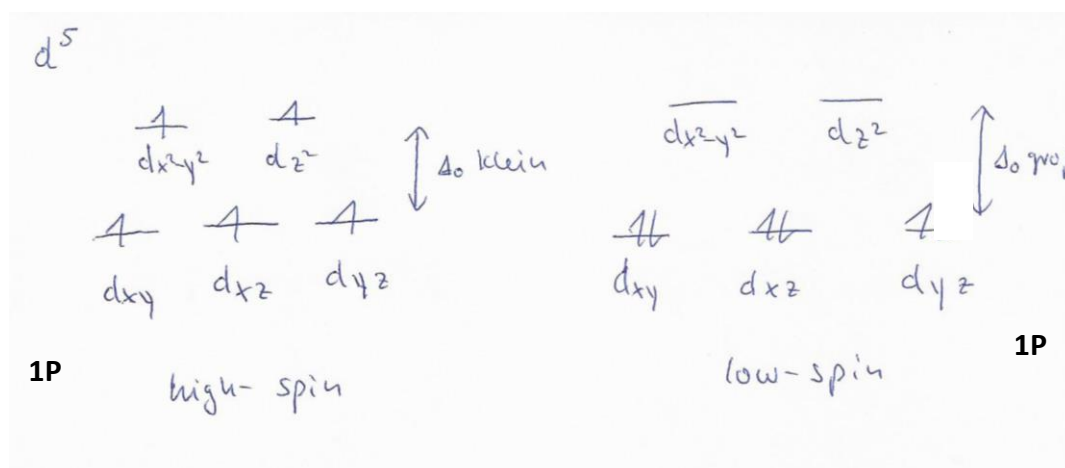 d⁵
dx²-y² dz²
Δ₀ klein
dxy dxz dyz
1P
high-spin
dx²-y² dz²
Δ₀
dxy dxz dyz
1P
low-spin